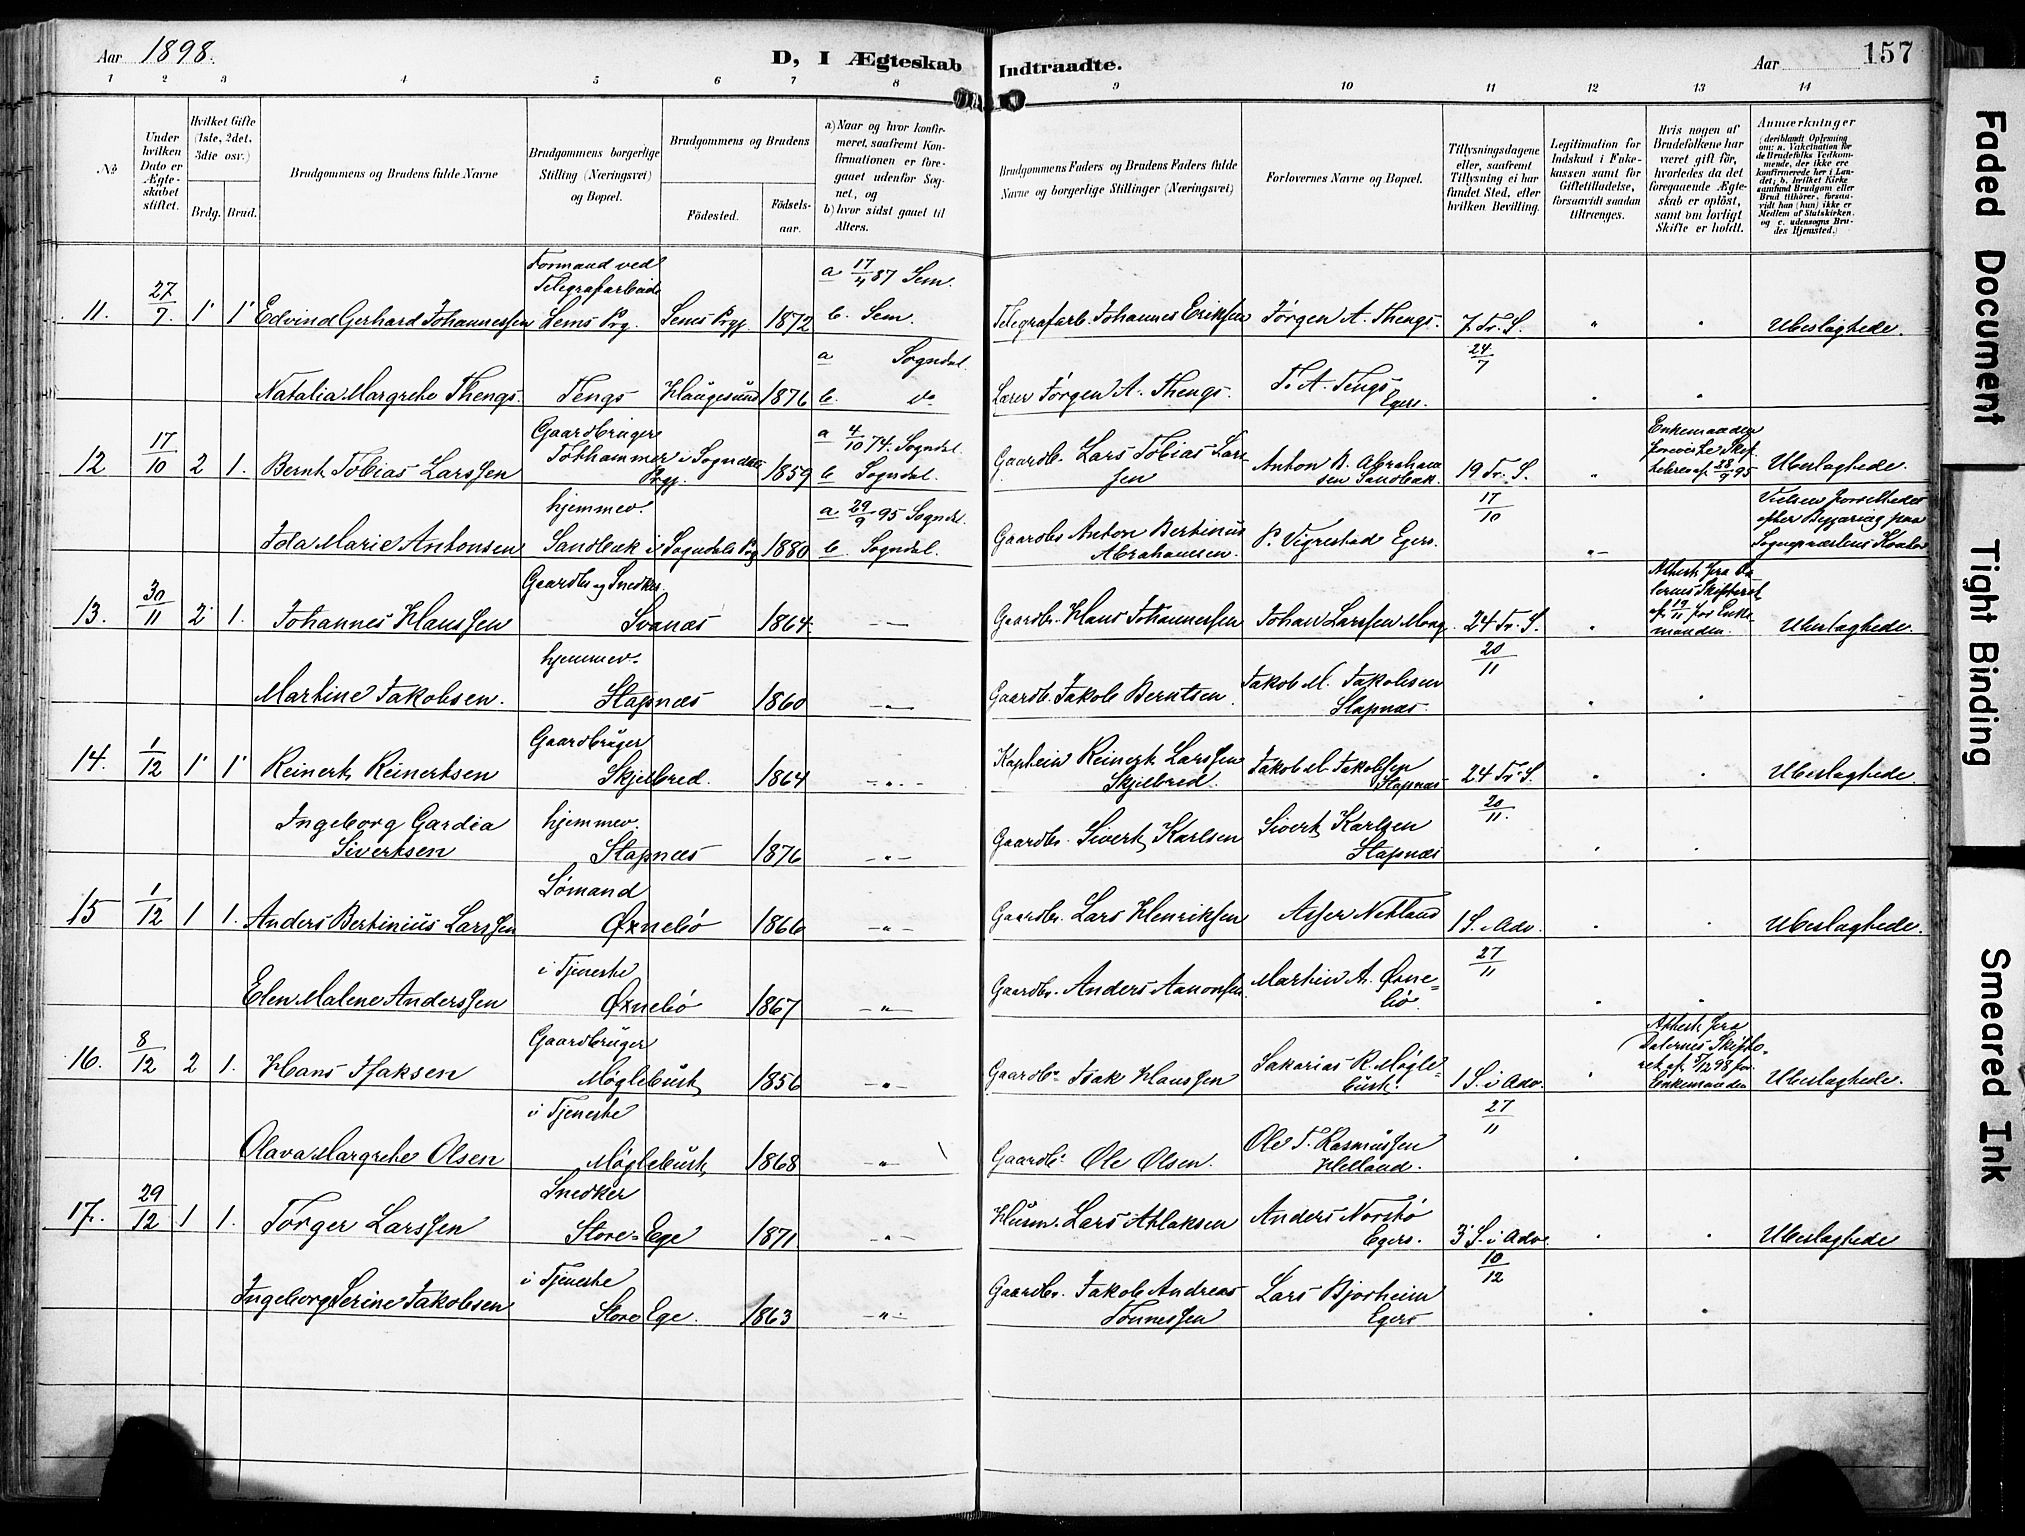 Aar 1898.
D, I Ægteskab Indtraadte.
Aar 157
1 2 3 4 5 6 7 8 9 10 11 12 13 14
No
Under hvilken Dato er Ægteskabet stiftet.
Hvilket Gifte (1ste, 2det, 3die osv.)
Brdg. Brud.
Brudgommens og Brudens fulde Navne
Brudgommens borgerlige Stilling (Næringsvei) og Bopæl.
Brudgommens og Brudens
Fødested.
Fødselsaar.
a) Naar og hvor konfirmeret, saafremt Konfirmationen er foregaaet udenfor Sognet, og
b) hvor sidst gaaet til Alters.
Brudgommens Faders og Brudens Faders fulde Navne og borgerlige Stillinger (Næringsvei)
Forlovernes Navne og Bopæl.
Tillysningsdagene eller, saafremt Tillysning ei har fundet Sted, efter hvilken Bevilling.
Legitimation for Indskud i Enkekassen samt for Giftetilladelse, forsaavidt saadan tiltrænges.
Hvis nogen af Brudefolkene har været gift før, hvorledes da det foregaaende Ægteskab er opløst, samt om lovligt Skifte er holdt.
Anmærkninger
(deriblandt Oplysning om: a. Vakcination for de Brudefolks Vedkommende, der ikke ere konfirmerede her i Landet; b. hvilket Kirkesamfund Brudgom eller Brud tilhører, forsaavidt han (hun) ikke er Medlem af Statskirken, og c. udensogns Brudes Hjemsted.)
11. 27/7. 1 1 Edvind Gerhard Johannessen Formand ved Telegrafarbeide Sems Prg. Sems Prgj. 1872 a 17/4 87 Sem. b. Sem. Telegrafarb. Johannes Eriksen Jørgen A. Thengs. 7 Tr. S. " " Ubeslægtede.
Natalia Margrethe Thengs. Tengs Haugesund 1876 a Sogndal. b. do Lærer Jørgen A. Thengs. T. A. Tengs Egers. 24/7 " "
12 17/10 2 1. Bernt Tobias Larssen Gaardbruger Tothammer i Sogndals Prgj. 1859 a 4/10 74. Sogndal. b Sogndal. Gaardb. Lars Tobias Larssen Anton B. Abrahamsen Sandbæk. 19 Tr. S. " Enkemanden af 28/9 95 Ubeslægtede.
Ida Marie Antonsen hjemmev. Sandbæk i Sogndals Prg 1880 a 29/9 95 Sogndal. b. Sogndal. Gaardbr Anton Bertinius Abrahamsen. P. Vigrestad Egers. 17/10 " Vielsen forrettedes efter Begjæring paa Sognepræstens Kontor
13. 30/11 2 1. Johannes Hanssen Gaardbr. og Snedker Svanæs 1864 " Gaardbr. Hans Johannessen Johan Larssen Mong 24 Tr. S. " Attest fra Dalernes Skifteret af 19/11 for Enkemanden. Ubeslægtede.
Martine Jakobsen. hjemmev. Stapnæs 1860 " Gaardb. Jakob Berntsen Jakob M. Jakobsen Stapnæs. 20/11 " "
14. 1/12 1 1 Reinert Reinertsen Gaardbruger Skjelbred. 1864 " Kaptein Reinert Larssen Skjelbred. Jakob M. Jakobsen Stapnæs 24 Tr. S. " " Ubeslægtede.
Ingeborg Gardia Sivertsen hjemmev. Stapnæs 1876 " Gaardbr. Sivert Karlsen Sivert Karlsen Stapnæs 20/11. " "
15 1/12 1 1. Anders Bertinius Larssen Sømand Øxnebø 1866 " Gaardbr. Lars Henriksen Asser Netland 1 S. i Adv. " " Ubeslægtede.
Elen Malene Anderssen i Tjeneste Øxnebø 1867 " Gaardbr. Anders Aanonsen. Martin A. Øxnebø. 27/11 " "
16. 8/12 2 1. Hans Isaksen Gaardbruger Møglebust 1856 " Gaardbr Isak Hanssen Sakarias R. Møglebust. 1 S. i Adv. " Attest fra Dalernes Skifteret af 5/12 98 for Enkemanden Ubeslægtede.
Olava Margrethe Olsen i Tjeneste Møglebust 1868 " Gaardb. Ole Olsen. Ole T. Rasmussen Helland. 27/11 "
17. 29/12 1 1. Torger Larssen Snedker Store-Ege 1871 " Husm. Lars Atlaksen Anders Norstø Egers. 3 S. i Adv. " " Ubeslægtede
Ingeborg Serine Jakobsen i Tjeneste Store Ege. 1863 " Gaardbr. Jakob Andreas Tønnessen Lars Bjorheim Egers 10/12 " "
Faded Document
Tight Binding
Smeared Ink